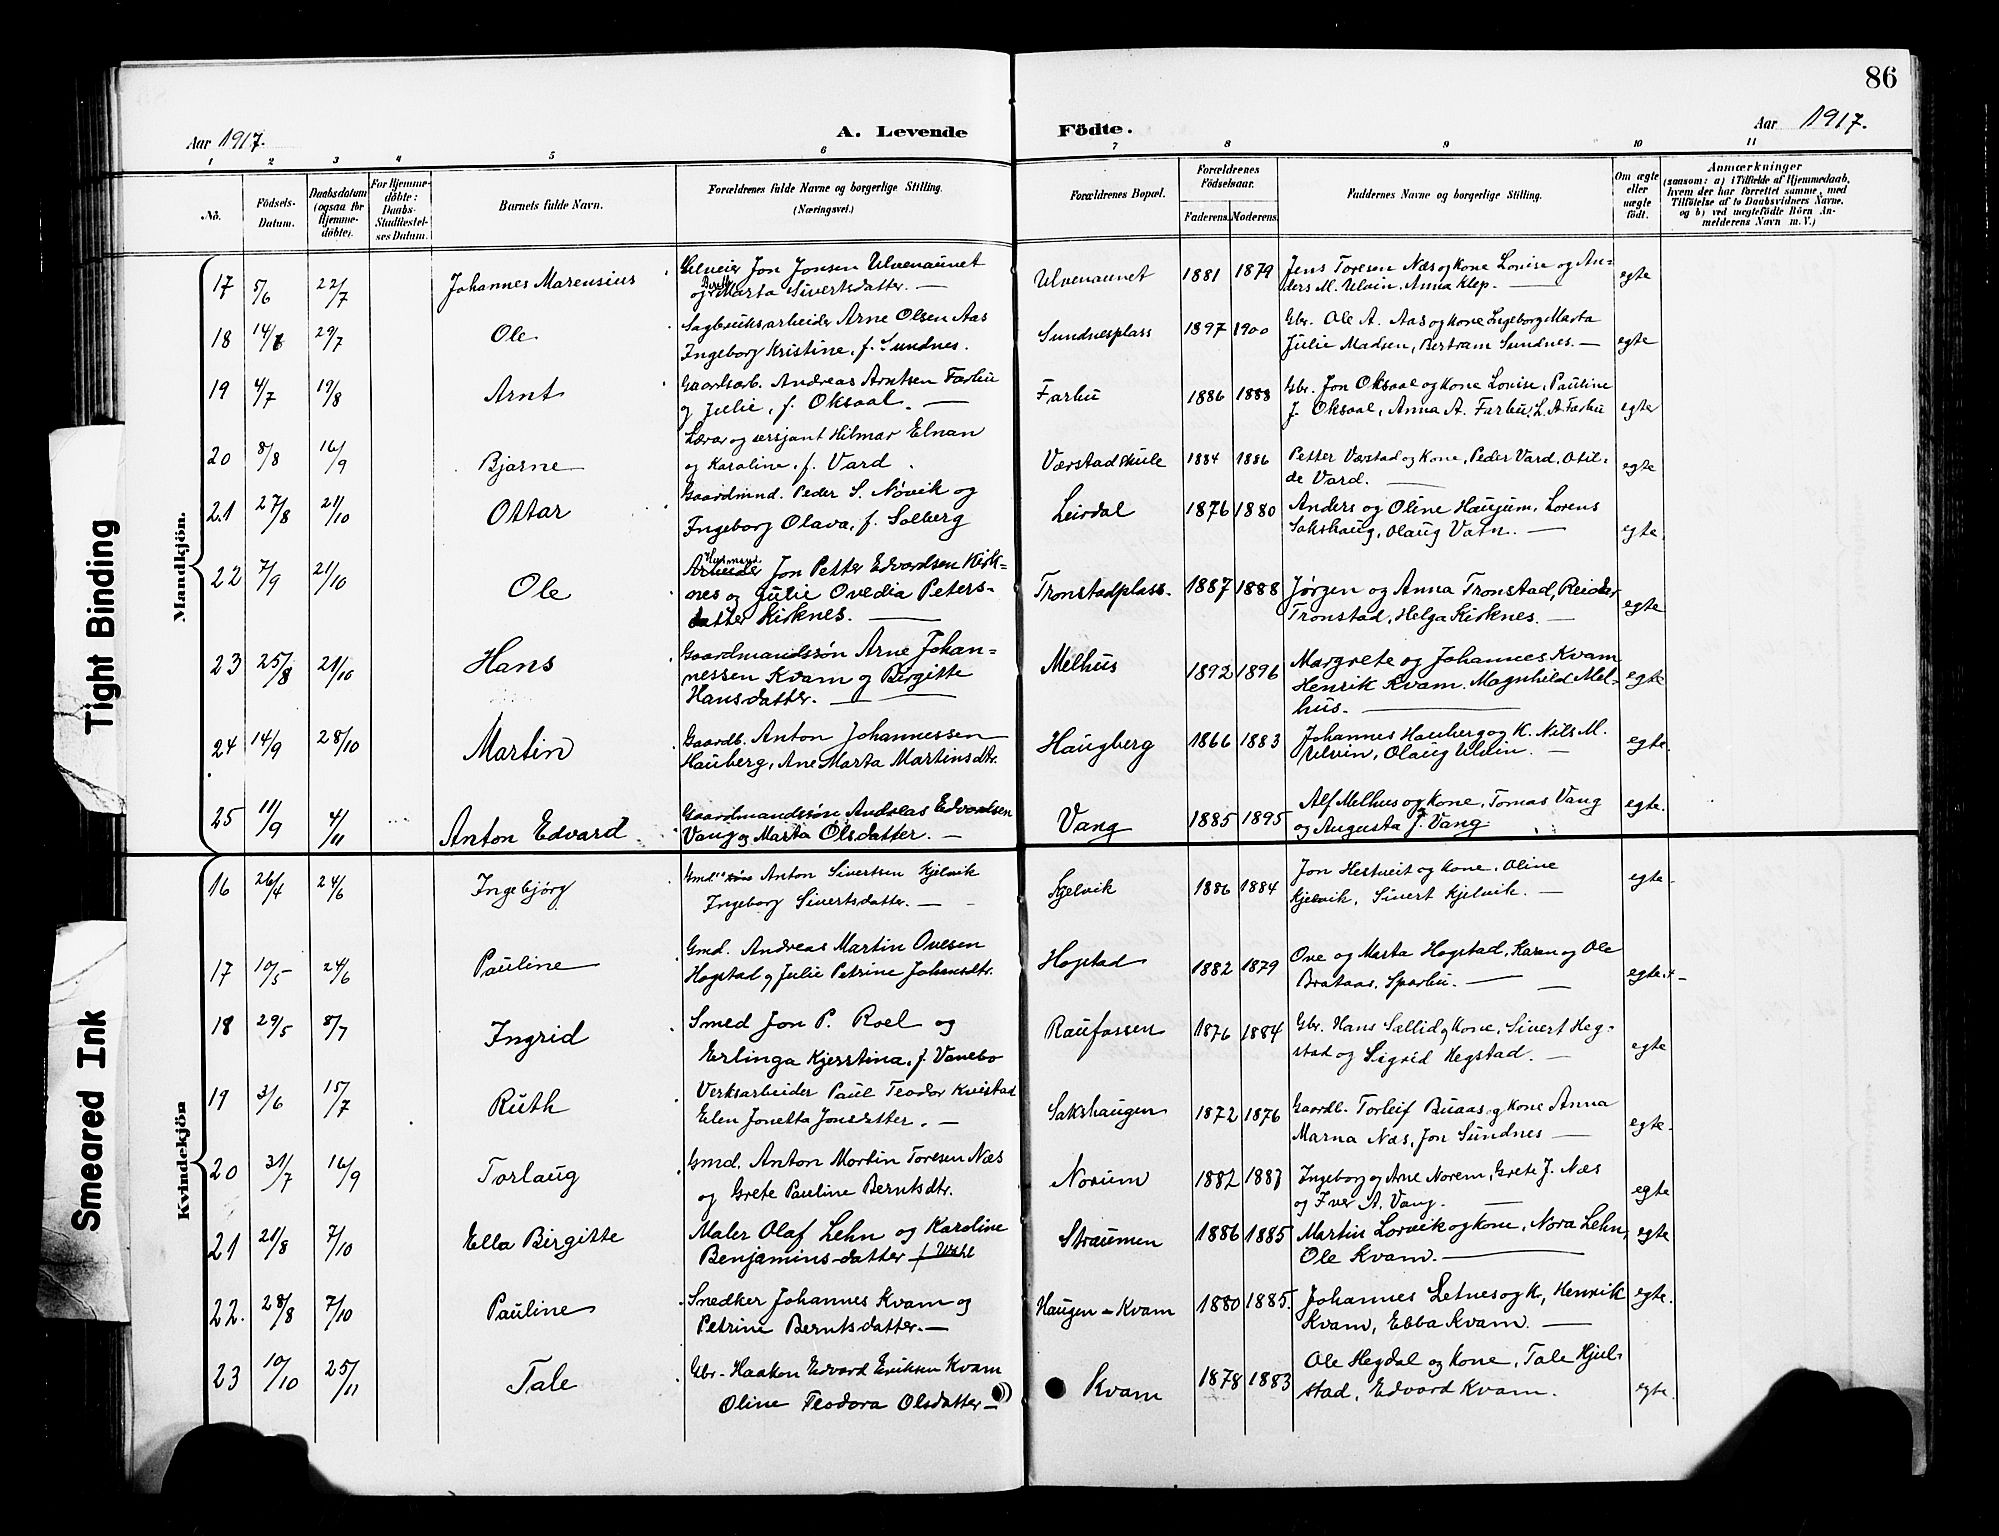 86
Aar 1917.
A. Levende Födte.
Aar 1917.
1 2 3 4 5 6 7 8 9 10 11
No.
Födsels-Datum.
Daabsdatum (ogsaa for Hjemme-döbte).
For Hjemme-döbte: Daabs-Stadfæstel-ses Datum.
Barnets fulde Navn.
Forældrenes fulde Navne og borgerlige Stilling. (Næringsvei.)
Forældrenes Bopæl.
Forældrenes Födselsaar.
Faderens. Moderens.
Faddernes Navne og borgerlige Stilling.
Om ægte eller uægte födt.
Anmærkninger
(saasom: a) i Tilfælde af Hjemmedaab, hvem der har forrettet samme, med Tilföielse af to Daabsvidners Navne, og b) ved uægtefödte Börn An-melderens Navn m. V.)
Mandkjön.
17 5/6 22/7 Johannes Marensius Jon Jonsen Ulvenaunet Ulvenaunet 1881 1879 Jens Toresen Næs og Kone Louise og An-egte
og Berit Marta Sivertsdatter. — ders M. Ulvin. Anna Klep. —
18 14/6 29/7 Ole Sagbruksarbeider Arne Olsen Aas Sundnesplass 1897 1900 Gbr. Ole A. Aas og Kone Ingeborg Marta egte
Ingeborg Kristine, f. Sundnes. Julie Madsen, Bertram Sundnes. —
19 4/7 19/8 Arnt Gaardsarb. Andreas Arntsen Farbu Farbu 1886 1888 Gbr. Jon Oksaal og Kone Louise, Pauline egte
og Julie, f. Oksaal. — J. Oksaal, Anna A. Farbu, L. A. Farbu
20 8/8 16/9 Bjarne Lærer og sersjant Hilmar Elnan Værstad skule 1884 1886 Petter Værstad og Kone, Peder Vard, Otil-egte
og Karoline, f. Vard. de Vard. —
21 27/8 21/10 Ottar Gaardmnd. Peder S. Nøvik og Leirdal 1876 1880 Anders og Oline Haugum, Lorens egte
Ingeborg Olava, f. Solberg Sakshaug, Olaug Vatn. —
22 7/9 21/10 Ole Arbeider Husmand. Jon Petter Edvardsen Kirk-Tronstadplass. 1887 1888 Jørgen og Anna Tronstad, Reidar egte
nes og Julie Ovedia Peters-Tronstad, Helga Kirknes. —
datter Kirknes. —
23 25/8 21/10 Hans Gaardmandssøn Arne Johan-Melhus 1892 1896 Margrete og Johannes Kvam egte
nessen Kvam og Birgitte Henrik Kvam. Magnhild Mel-
Hansdatter. — hus. —
24 14/9 28/10 Martin Gaardb. Anton Johannessen Haugberg 1866 1883 Johannes Hauberg og K. Nils M. egte.
Hauberg, Ane Marta Martinsdtr. Ulvin, Olaug Ulvin. —
25 11/9 4/11 Anton Edvard Gaardmandssøn Andreas Edvardsen Vang 1885 1895 Alf Melhus og Kone, Tomas Vang egte.
Vang og Marta Olsdatter. — og Augusta J. Vang.
Kvindekjön
16 26/4 24/6 Ingebjørg Gmd. Anton Sivertsen Kjelvik Kjelvik 1886 1884 Jon Hestveit og Kone. Oline egte.
Ingeborg Sivertsdatter. — Kjelvik, Sivert Kjelvik. —
17 10/5 24/6 Pauline Gmd. Andreas Martin Ovesen Hogstad 1882 1879 Ove og Marta Hogstad, Karen og Ole egte.
Hogstad og Julie Petrine Johansdtr. Brataas. Sparbu. —
18 29/5 8/7 Ingrid Smed Jon P. Roel og Raufossen 1876 1884 Gbr. Hans Sællid og Kone, Sivert Heg-egte
Erlinga Kjerstina, f. Vanebo stad og Sigrid Hegstad. —
19 3/6 15/7 Ruth Verksarbeider Paul Teodor Kvistad Sakshaugen 1872 1876 Gaardb. Torleif Buaas og Kone Anna egte.
Elen Jonetta Jonsdatter. — Marna Næs, Jon Sundnes —
20 31/7 16/9 Torlaug Gmd. Anton Mortin Toresen Næs Norum 1882 1887 Ingeborg og Arne Norem, Grete J. Næs egte
og Grete Pauline Berntsdtr. og Iver A. Vang. —
21 21/8 7/10 Ella Birgitte Maler Olaf Lehn og Karoline Straumen 1886 1885 Martin Lorvik og Kone, Nora Lehn, egte
Benjamins-datter Ole Kvam. —
22. 28/8 7/10 Pauline Snedker Johannes Kvam og Haugen - Kvam 1880 1885. Johannes Letnes og K, Henrik egte.
Petrine Berntsdatter. — Kvam, Ebba Kvam. —
23 10/10 25/11 Tale Gbr. Haakon Edvard Eriksen Kvam Kvam 1878 1883 Ole Hegdal og Kone, Tale Hjul-egte.
Oline Teodora Olsdatter — stad, Edvard Kvam.
Tight Binding
Smeared Ink